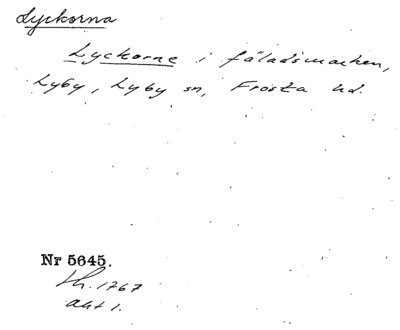 Lyckorna
Lyckorne i fäladsmarken,
Lyby, Lyby sn, Frosta hd.
Nr 5645.
Lh. 1767
akt 1.